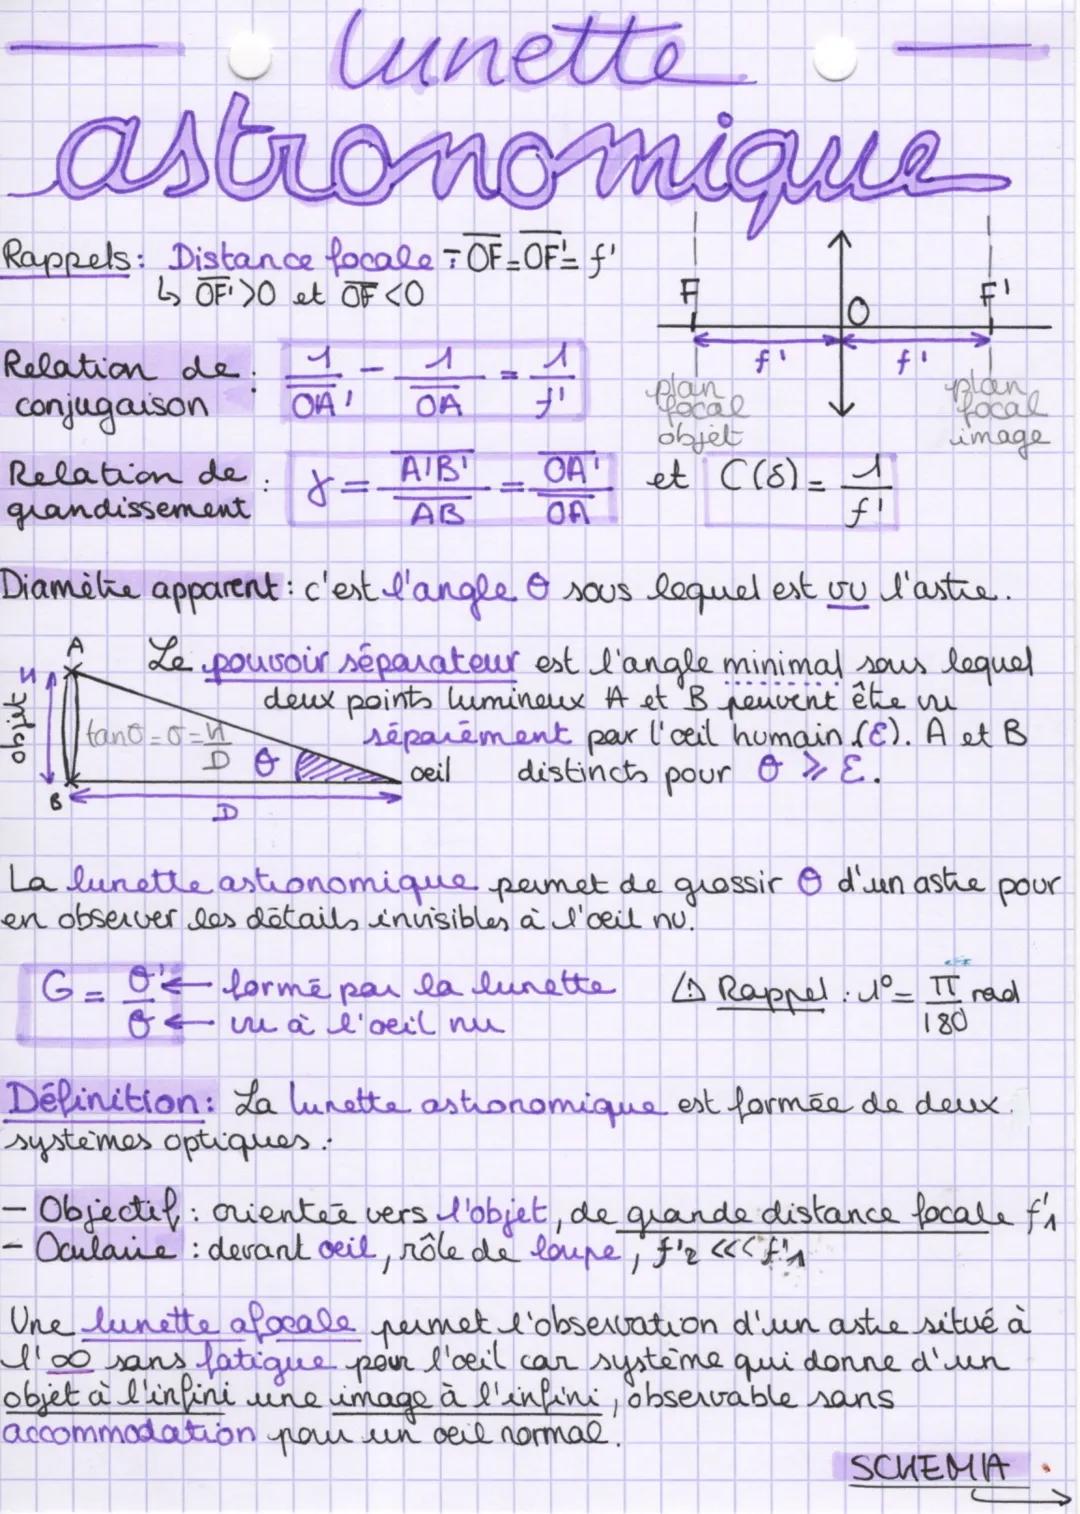 lunette
astronomique
Rappels: Distance focale = -OF = OF' = f'
↳ OF' > 0 et OF < 0
F O F'
f' f'
plan focal objet
plan focal image
Relation de conjugaison : 1/OA' - 1/OA = 1/f'
Relation de grandissement : γ = A'B'/AB = OA'/OA et C(δ) = 1/f'
Diamètre apparent : c'est l'angle θ sous lequel est vu l'astre.
Le pouvoir séparateur est l'angle minimal sous lequel
deux points lumineux A et B peuvent être vu
séparément par l'œil humain (ε). A et B
distincts pour θ ⩾ ε.
A
objet H
tanθ = θ = H/D
θ
oeil
B
D
La lunette astronomique permet de grossir θ d'un astre pour
en observer les détails invisibles à l'œil nu.
G = θ'/θ
θ' ← formé par la lunette
θ ← vu à l'oeil nu
⚠ Rappel : 1° = π/180 rad
Définition : La lunette astronomique est formée de deux
systèmes optiques :
- Objectif : orientée vers l'objet, de grande distance focale f'1
- Oculaire : devant oeil, rôle de loupe, f'2 <<< f'1
Une lunette afocale permet l'observation d'un astre situé à
l'∞ sans fatigue pour l'œil car système qui donne d'un
objet à l'infini une image à l'infini, observable sans
accommodation pour un oeil normal.
SCHEMA →